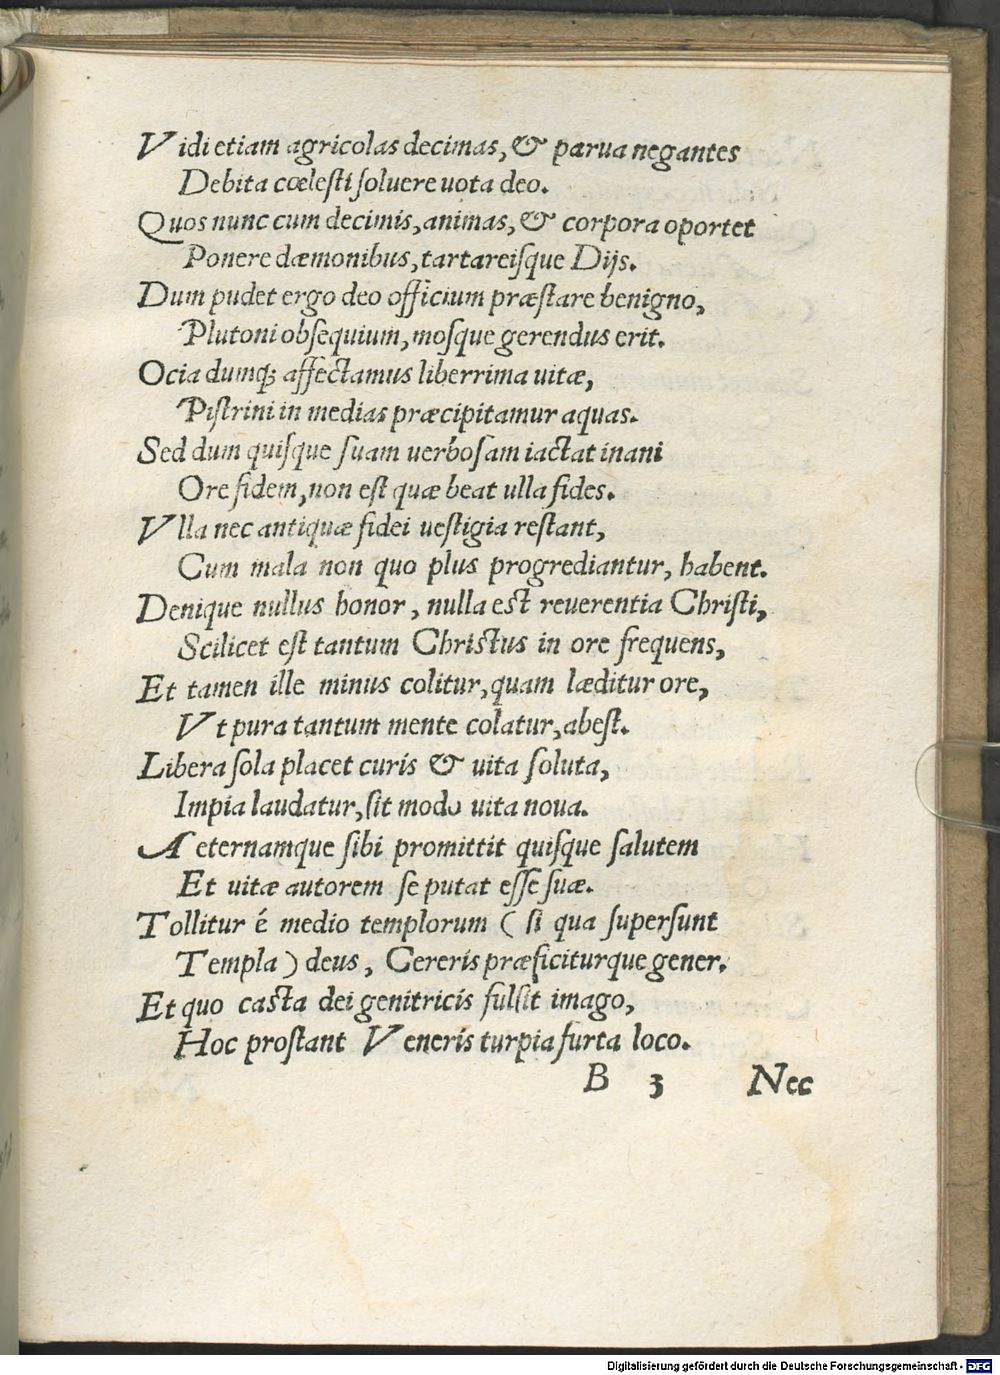 Vidi etiam agricolas decimas, & parua negantes
Debita cœlesti soluere uota deo.
Quos nunc cum decimis, animas, & corpora oportet
Ponere dæmonibus, tartareisque Dijs.
Dum pudet ergo deo officium præstare benigno,
Plutoni obsequium, mosque gerendus erit.
Ocia dumq; affectamus liberrima uitæ,
Pistrini in medias præcipitamur aquas.
Sed dum quisque suam uerbosam iactat inani
Ore fidem, non est quæ beat ulla fides.
Vlla nec antiquæ fidei uestigia restant,
Cum mala non quo plus progrediantur, habent.
Denique nullus honor, nulla est reuerentia Christi,
Scilicet est tantum Christus in ore frequens,
Et tamen ille minus colitur, quam læditur ore,
Vt pura tantum mente colatur, abest.
Libera sola placet curis & uita soluta,
Impia laudatur, sit modo uita noua.
Aeternamque sibi promittit quisque salutem
Et uitæ autorem se putat esse suæ.
Tollitur é medio templorum (si qua supersunt
Templa) deus, Cereris præficiturque gener.
Et quo casta dei genitricis fulsit imago,
Hoc prostant Veneris turpia furta loco.
B 3 Nec
Digitalisierung gefördert durch die Deutsche Forschungsgemeinschaft - DFG